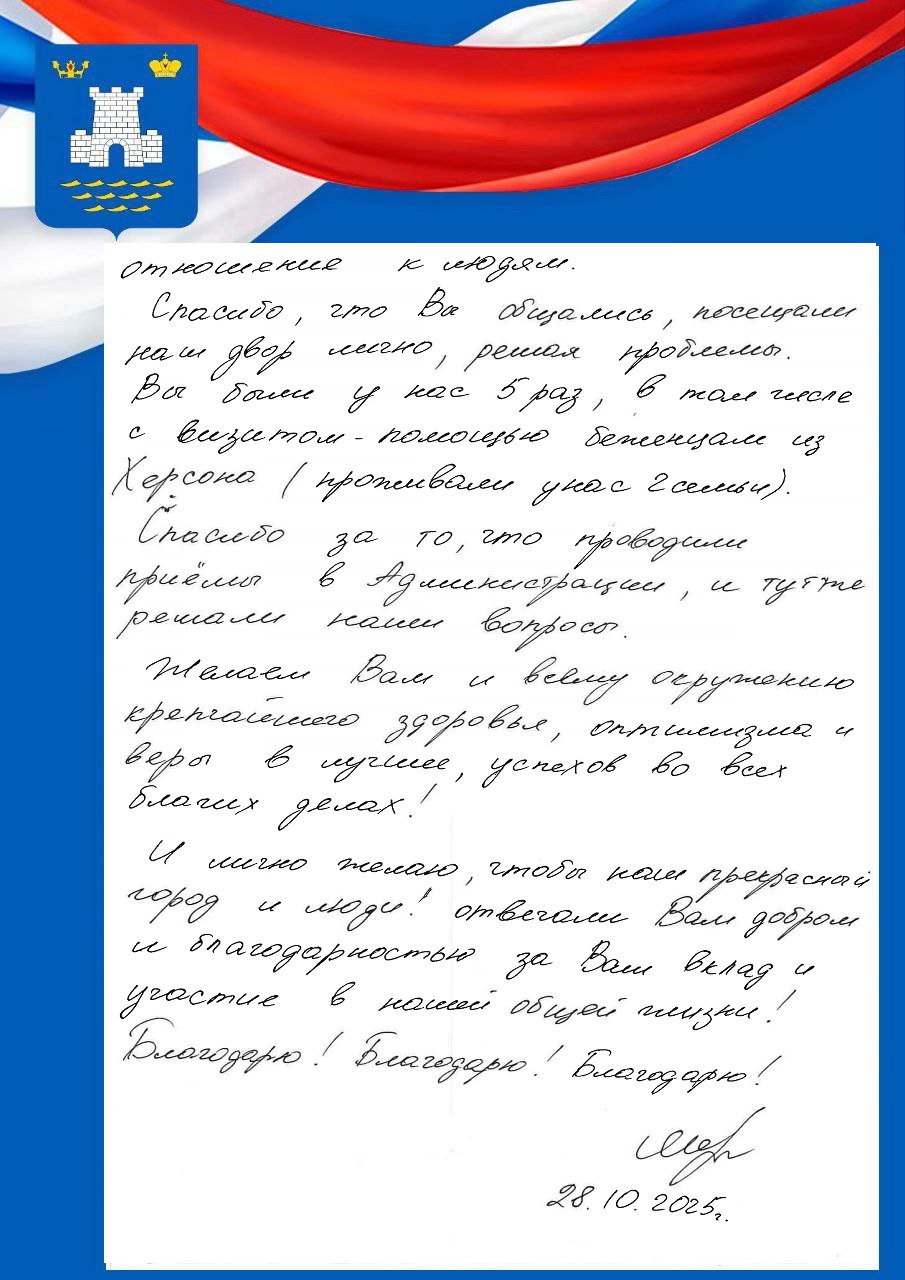 отношение к людям.
Спасибо, что Вы общались, посещали
наш двор лично, решая проблемы.
Вы были у нас 5 раз, в том числе
с визитом-помощью беженцам из
Херсона (проживали у нас 2 семьи).
Спасибо за то, что проводили
приёмы в Администрации, и тут же
решали наши вопросы.
Желаем Вам и всему окружению
крепчайшего здоровья, оптимизма и
веры в лучшее, успехов во всех
благих делах!
И лично желаю, чтобы наш прекрасный
город и люди! отвечали Вам добром
и благодарностью за Ваш вклад и
участие в нашей общей жизни!
Благодарю! Благодарю! Благодарю!
28.10.2025г.